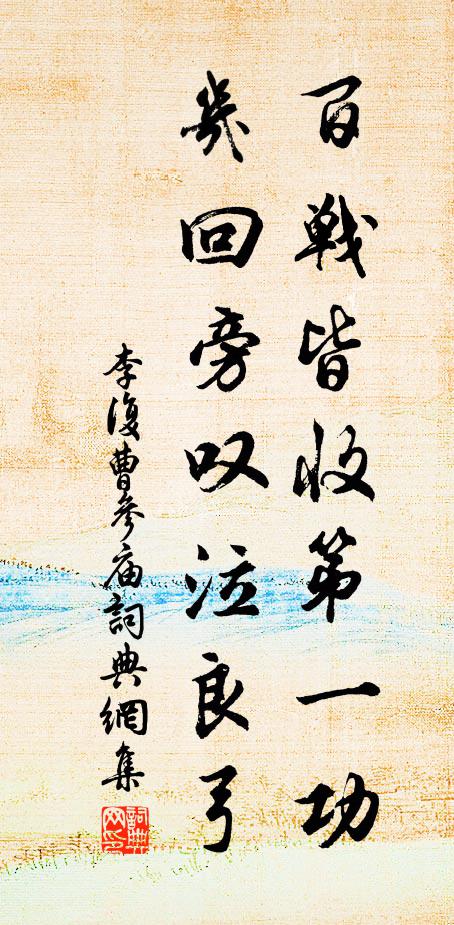 百戦皆收第一功
幾回旁叹泣良弓
李復曹參庙詞典網集
詞典网印